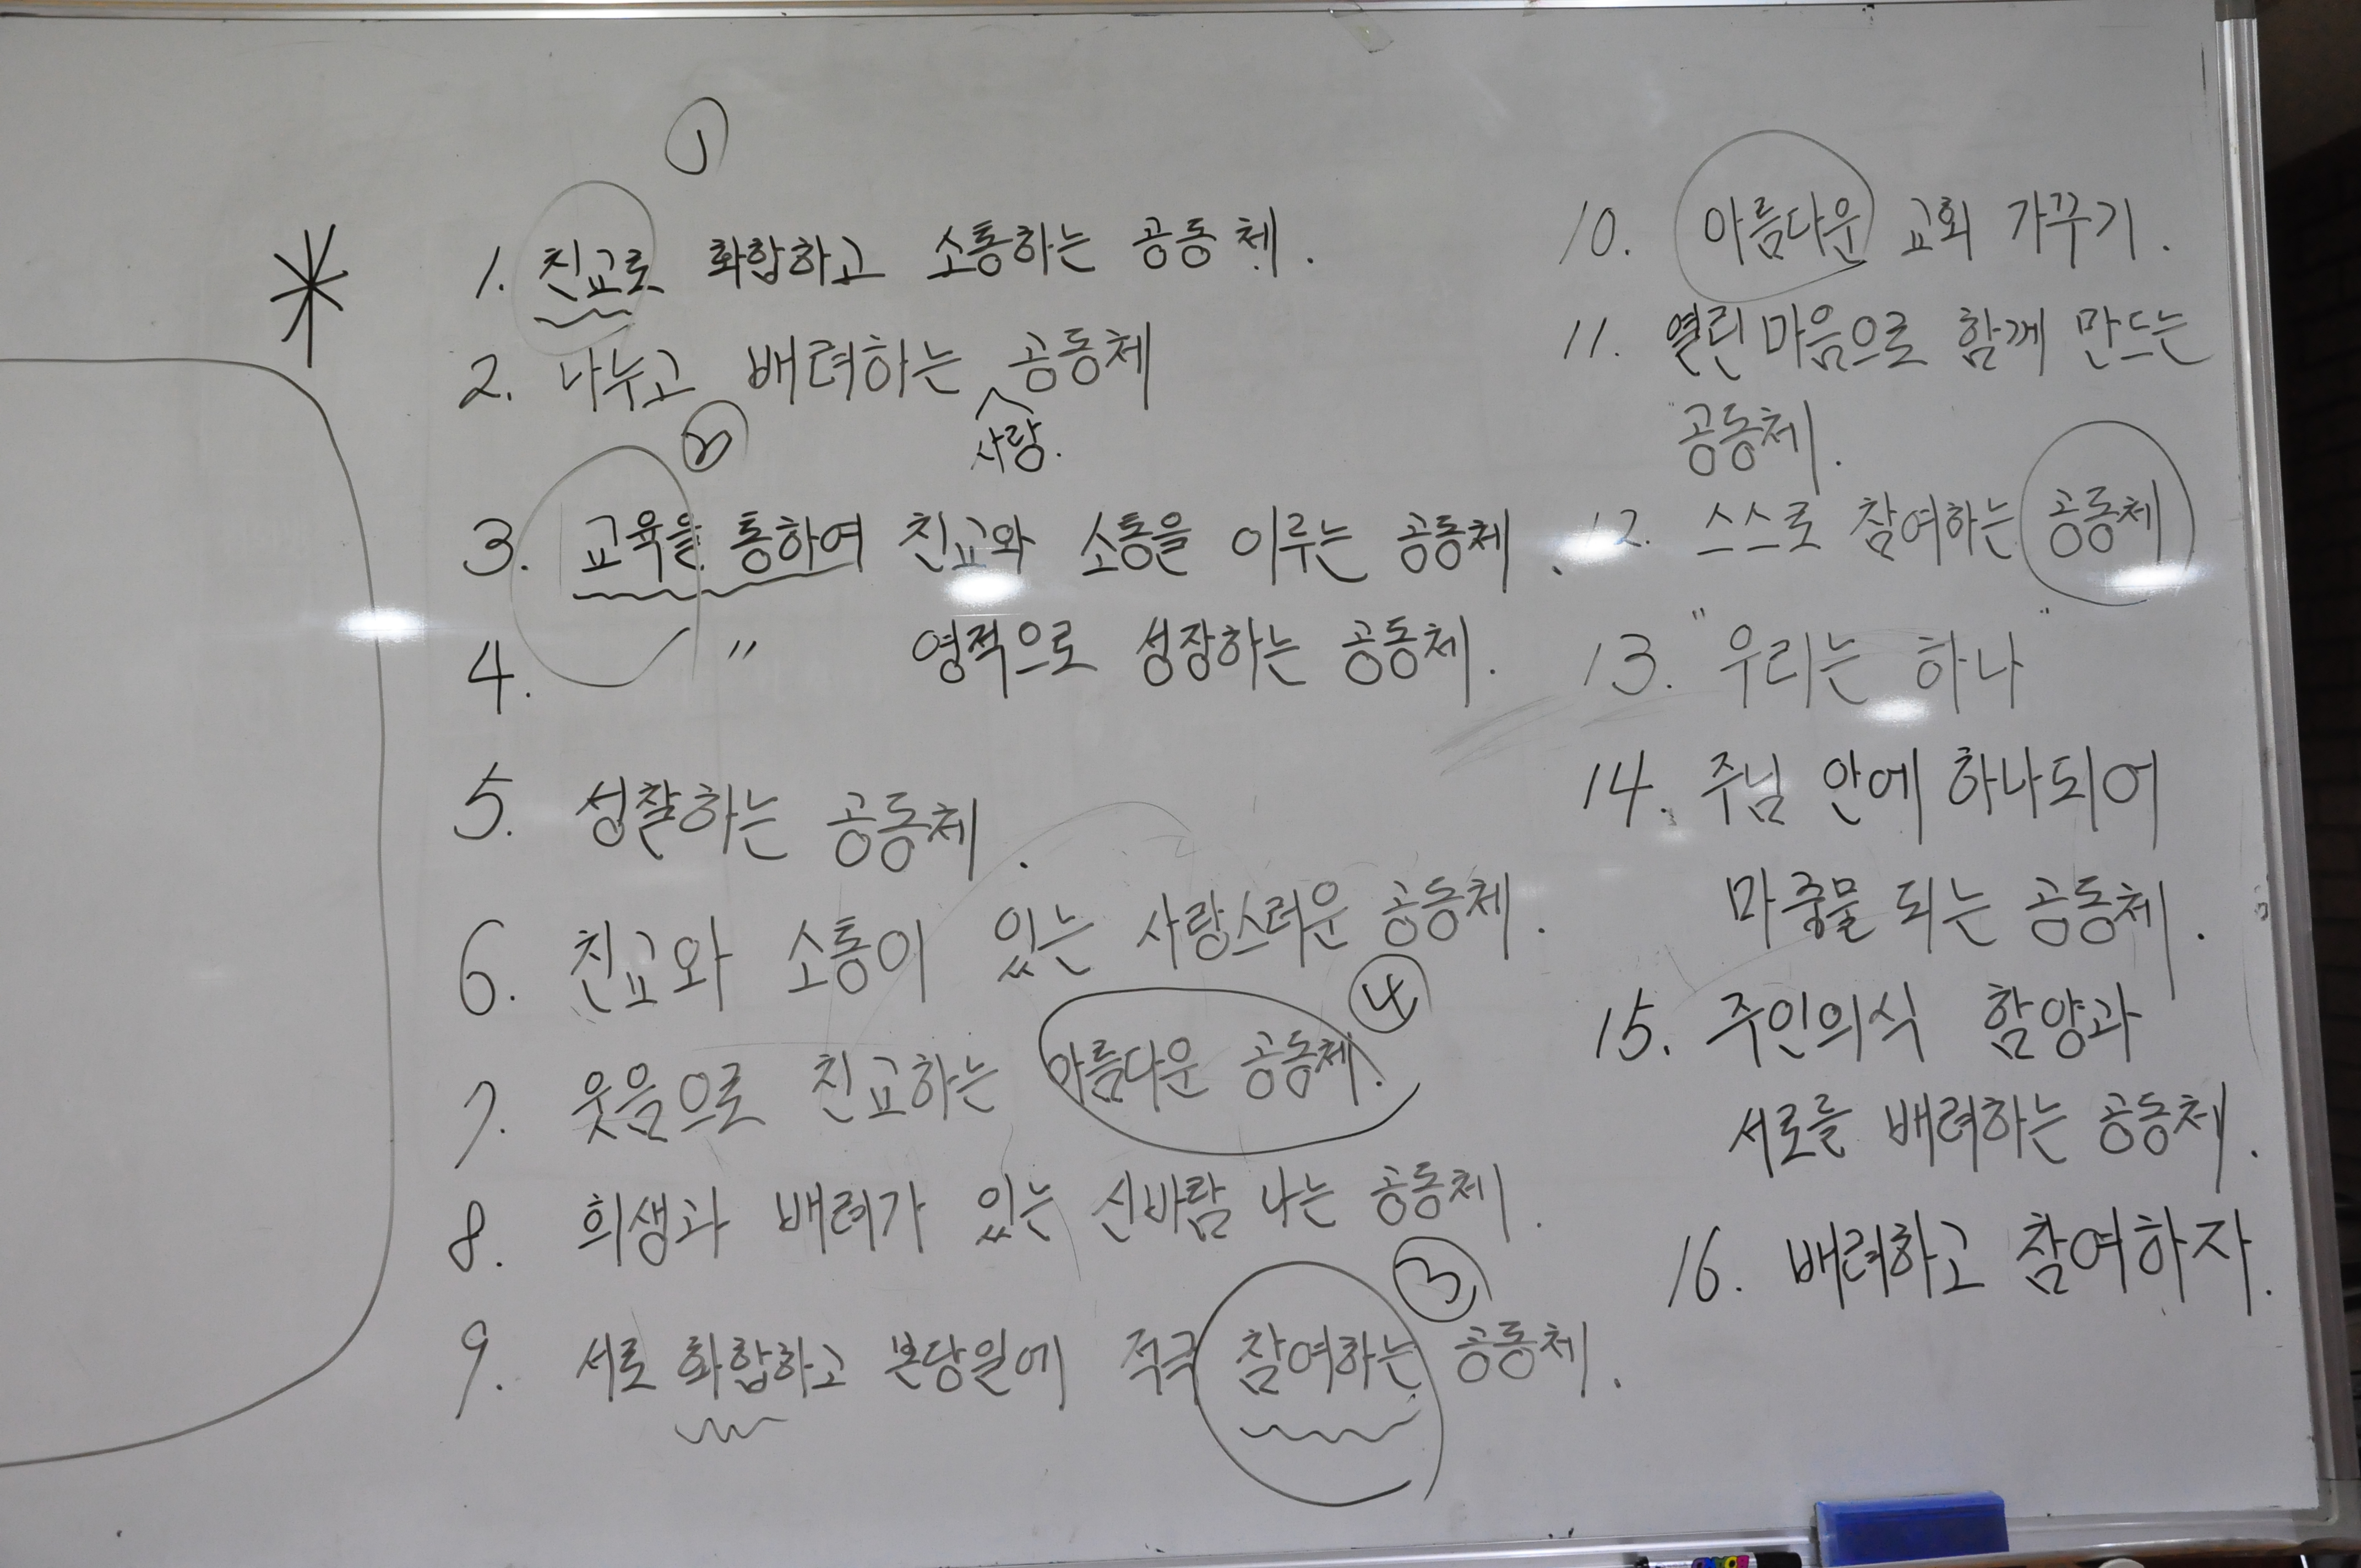 ①
1. 친교로 화합하고 소통하는 공동체.
2. 나누고 배려하는 공동체
사랑.
②
3. 교육을 통하여 친교와 소통을 이루는 공동체.
4. 〃 영적으로 성장하는 공동체.
5. 성찰하는 공동체.
6. 친교와 소통이 있는 사랑스러운 공동체.
④
7. 웃음으로 친교하는 아름다운 공동체.
8. 희생과 배려가 있는 신바람 나는 공동체.
③
9. 서로 화합하고 본당일에 적극 참여하는 공동체.
10. 아름다운 교회 가꾸기.
11. 열린마음으로 함께 만드는
공동체.
12. 스스로 참여하는 공동체
13. "우리는 하나"
14. 주님 안에 하나되어
마중물 되는 공동체.
15. 주인의식 함양과
서로를 배려하는 공동체.
16. 배려하고 참여하자.